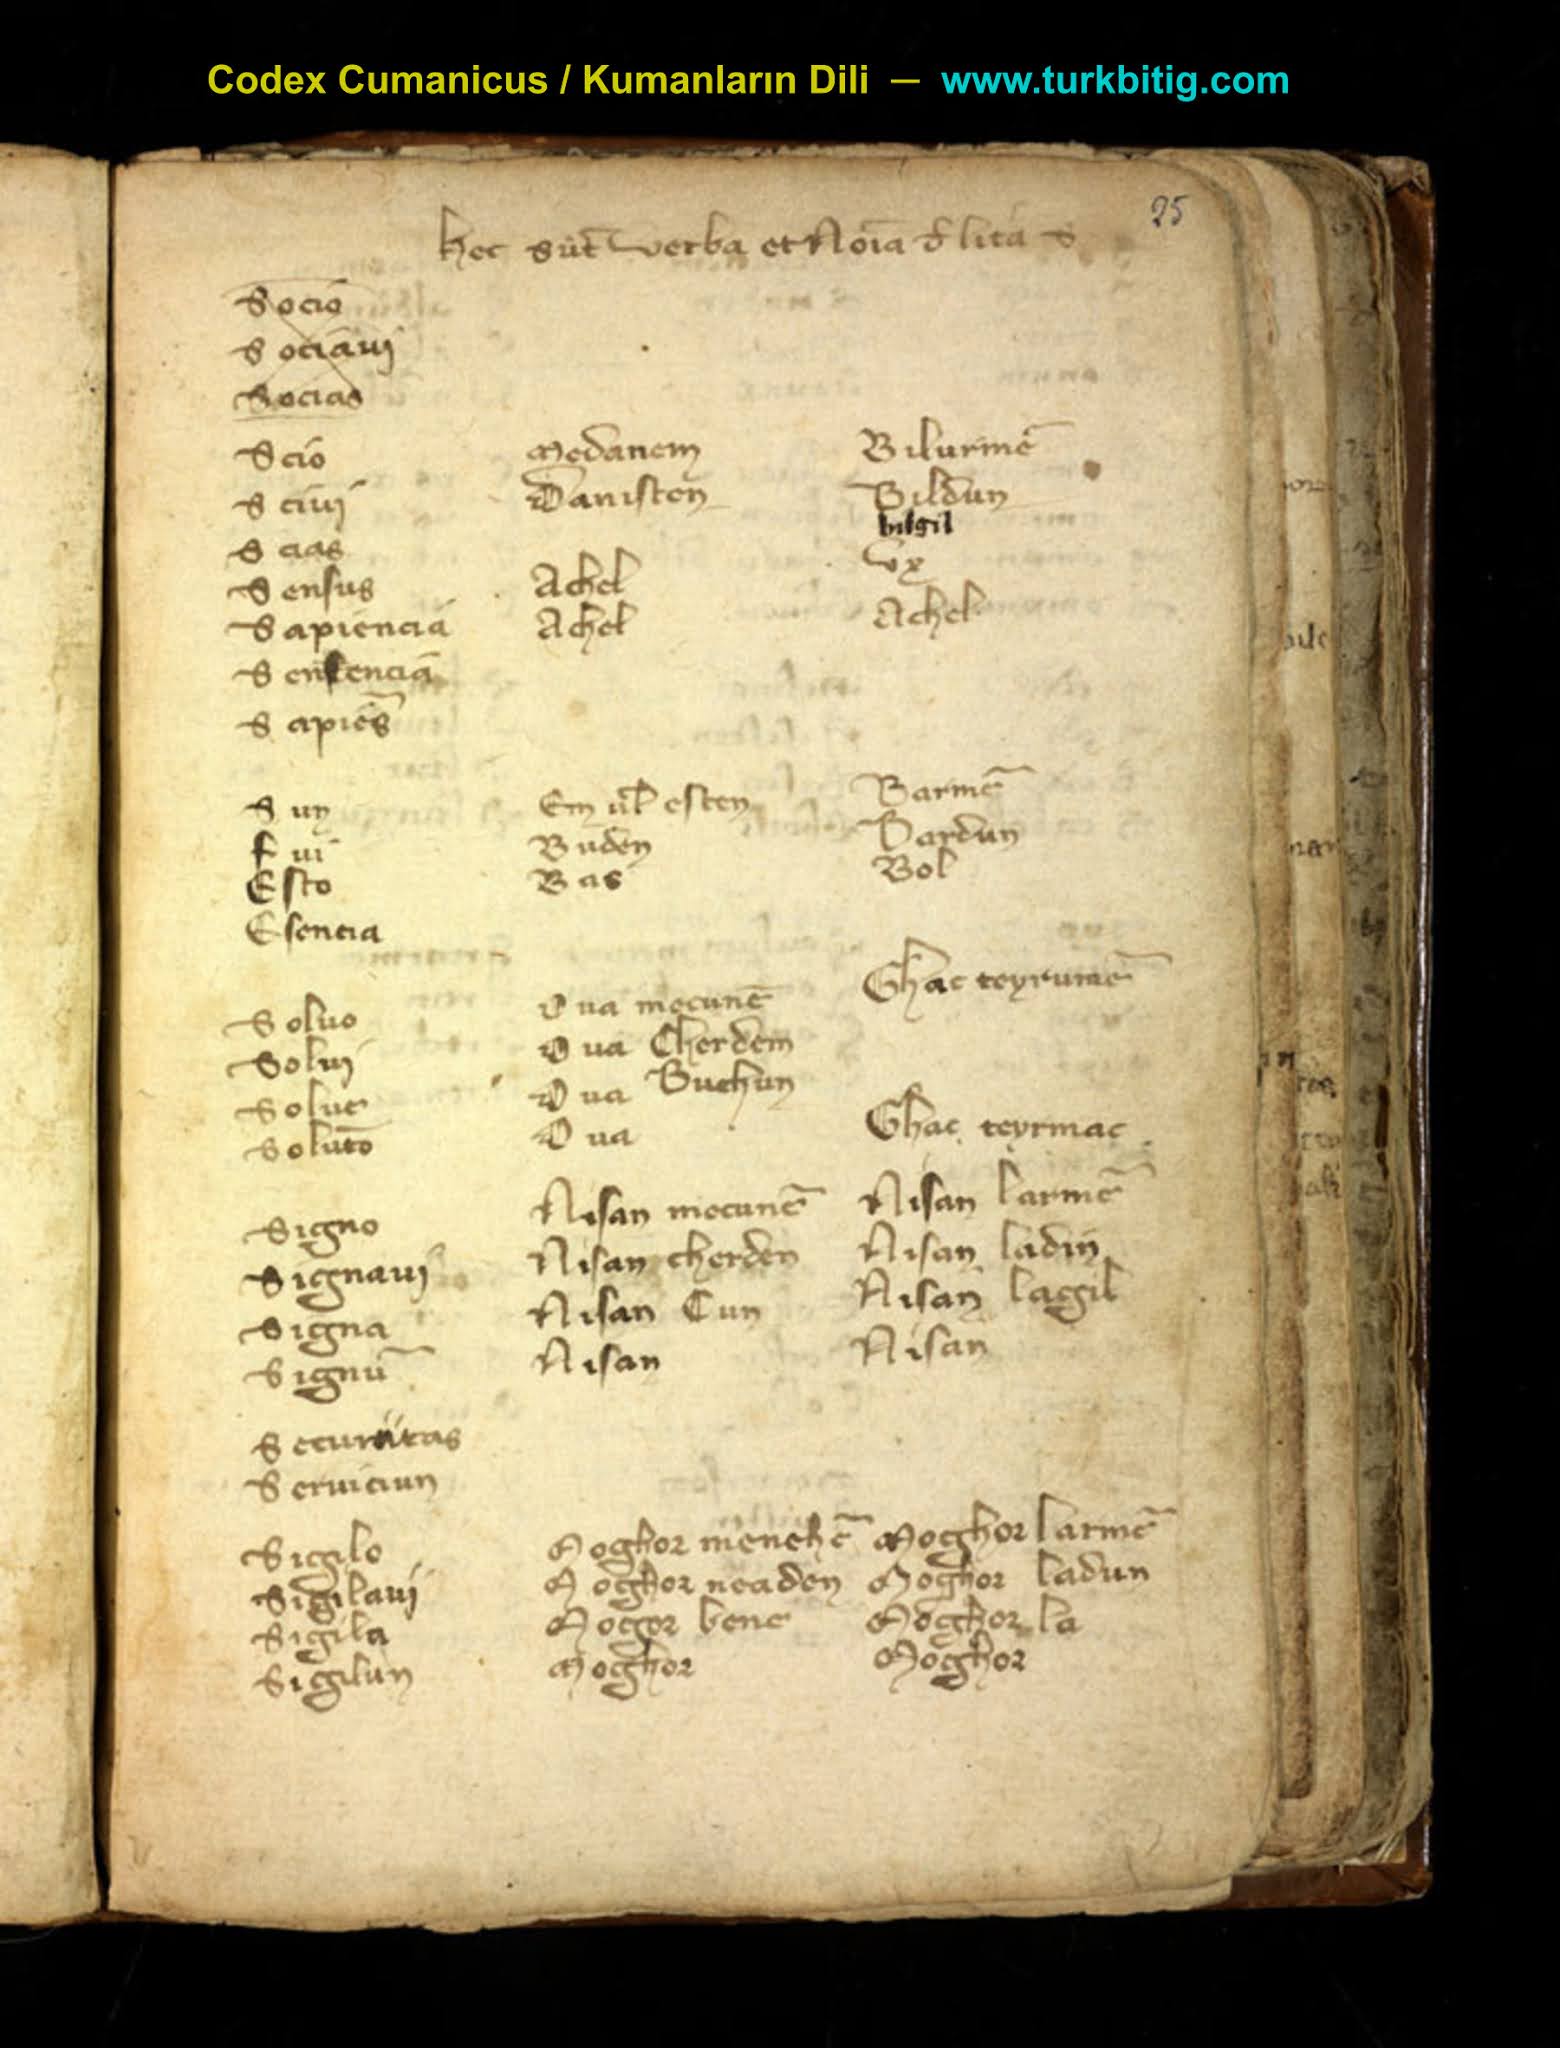 Codex Cumanicus / Kumanların Dili — www.turkbitig.com
25
hec sūt verba et Noīa d̄ lit̄a S
Socio
Sociaui
Socias
Scio Medanem Bilurmē
Sciui Danisten Bildun
bilgil
Scias Vx
Sensus Achel
Sapiencia Achel Achel
Sentencia
Sapiēs
Sum Em ul̄ esten Barmē
Fui Buden Bardun
Esto Bas Bol
Esencia
Soluo Dua mecunē Ghac teyrumē
Solui Dua Cherdem
Solue Dua Buchun
Solutō Dua Ghac teyrmac
Signo Nisan mecunē Nisan larmē
Signaui Nisan cherden Nisan ladin
Signa Nisan Cun Nisan lagil
Signū Nisan Nisan
Securitas
Seruiciun
Sigilo Moghor menehē Moghor larmē
Sigilaui Moghor neaden Moghor ladun
Sigila Mogor bene Moghor la
Sigilun Moghor Moghor